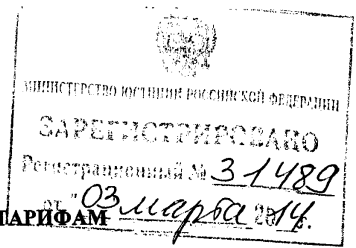 МИНИСТЕРСТВО ЮСТИЦИИ РОССИЙСКОЙ ФЕДЕРАЦИИ
ЗАРЕГИСТРИРОВАНО
Регистрационный № 31489
от "03 марта 2014.
ТАРИФАМ